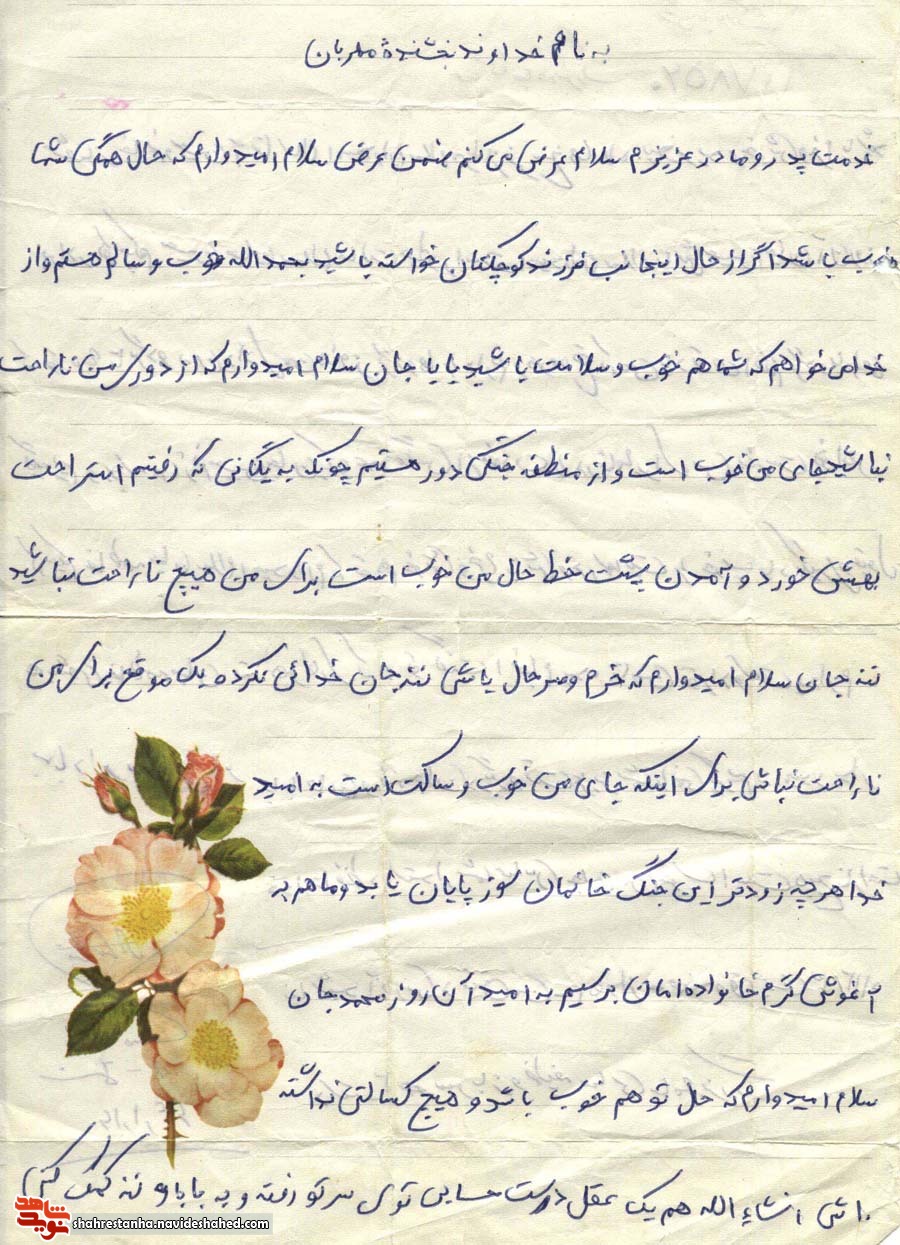 به نام خداوند بخشنده مهربان
خدمت پدر و مادر عزیزم سلام عرض می کنم ضمن عرض سلام امیدوارم که حال همگی شما
خوب باشد اگر از حال اینجانب فرزند کوچکتان خواسته باشید بحمدالله خوب و سالم هستم و از
خدا می خواهم که شما هم خوب و سلامت باشید بابا جان سلام امیدوارم که از دوری من ناراحت
نباشید جای من خوب است و از منطقه جنگی دور هستیم چونکه به یگانی که رفتیم استراحت
بهش خورد و آمدن پشت خط حال من خوب است برای من هیچ ناراحت نباشید
ننه جان سلام امیدوارم که خرم و سرحال باشی ننه جان خدائی نکرده یک موقع برای من
ناراحت نباشی برای اینکه جای من خوب و ساکت است به امید
خدا هر چه زودتر این جنگ خانمان سوز پایان یابد و ما هم به
آغوش گرم خانواده امان برسیم به امید آن روز محمد جان
سلام امیدوارم که حال تو هم خوب باشد و هیچ کسالتی نداشته
باشی انشاء الله هم یک عقل درست حسابی توی سر تو رفته و به بابا و ننه کمک کنی
نوید شاهد
shahrestanha.navideshahed.com